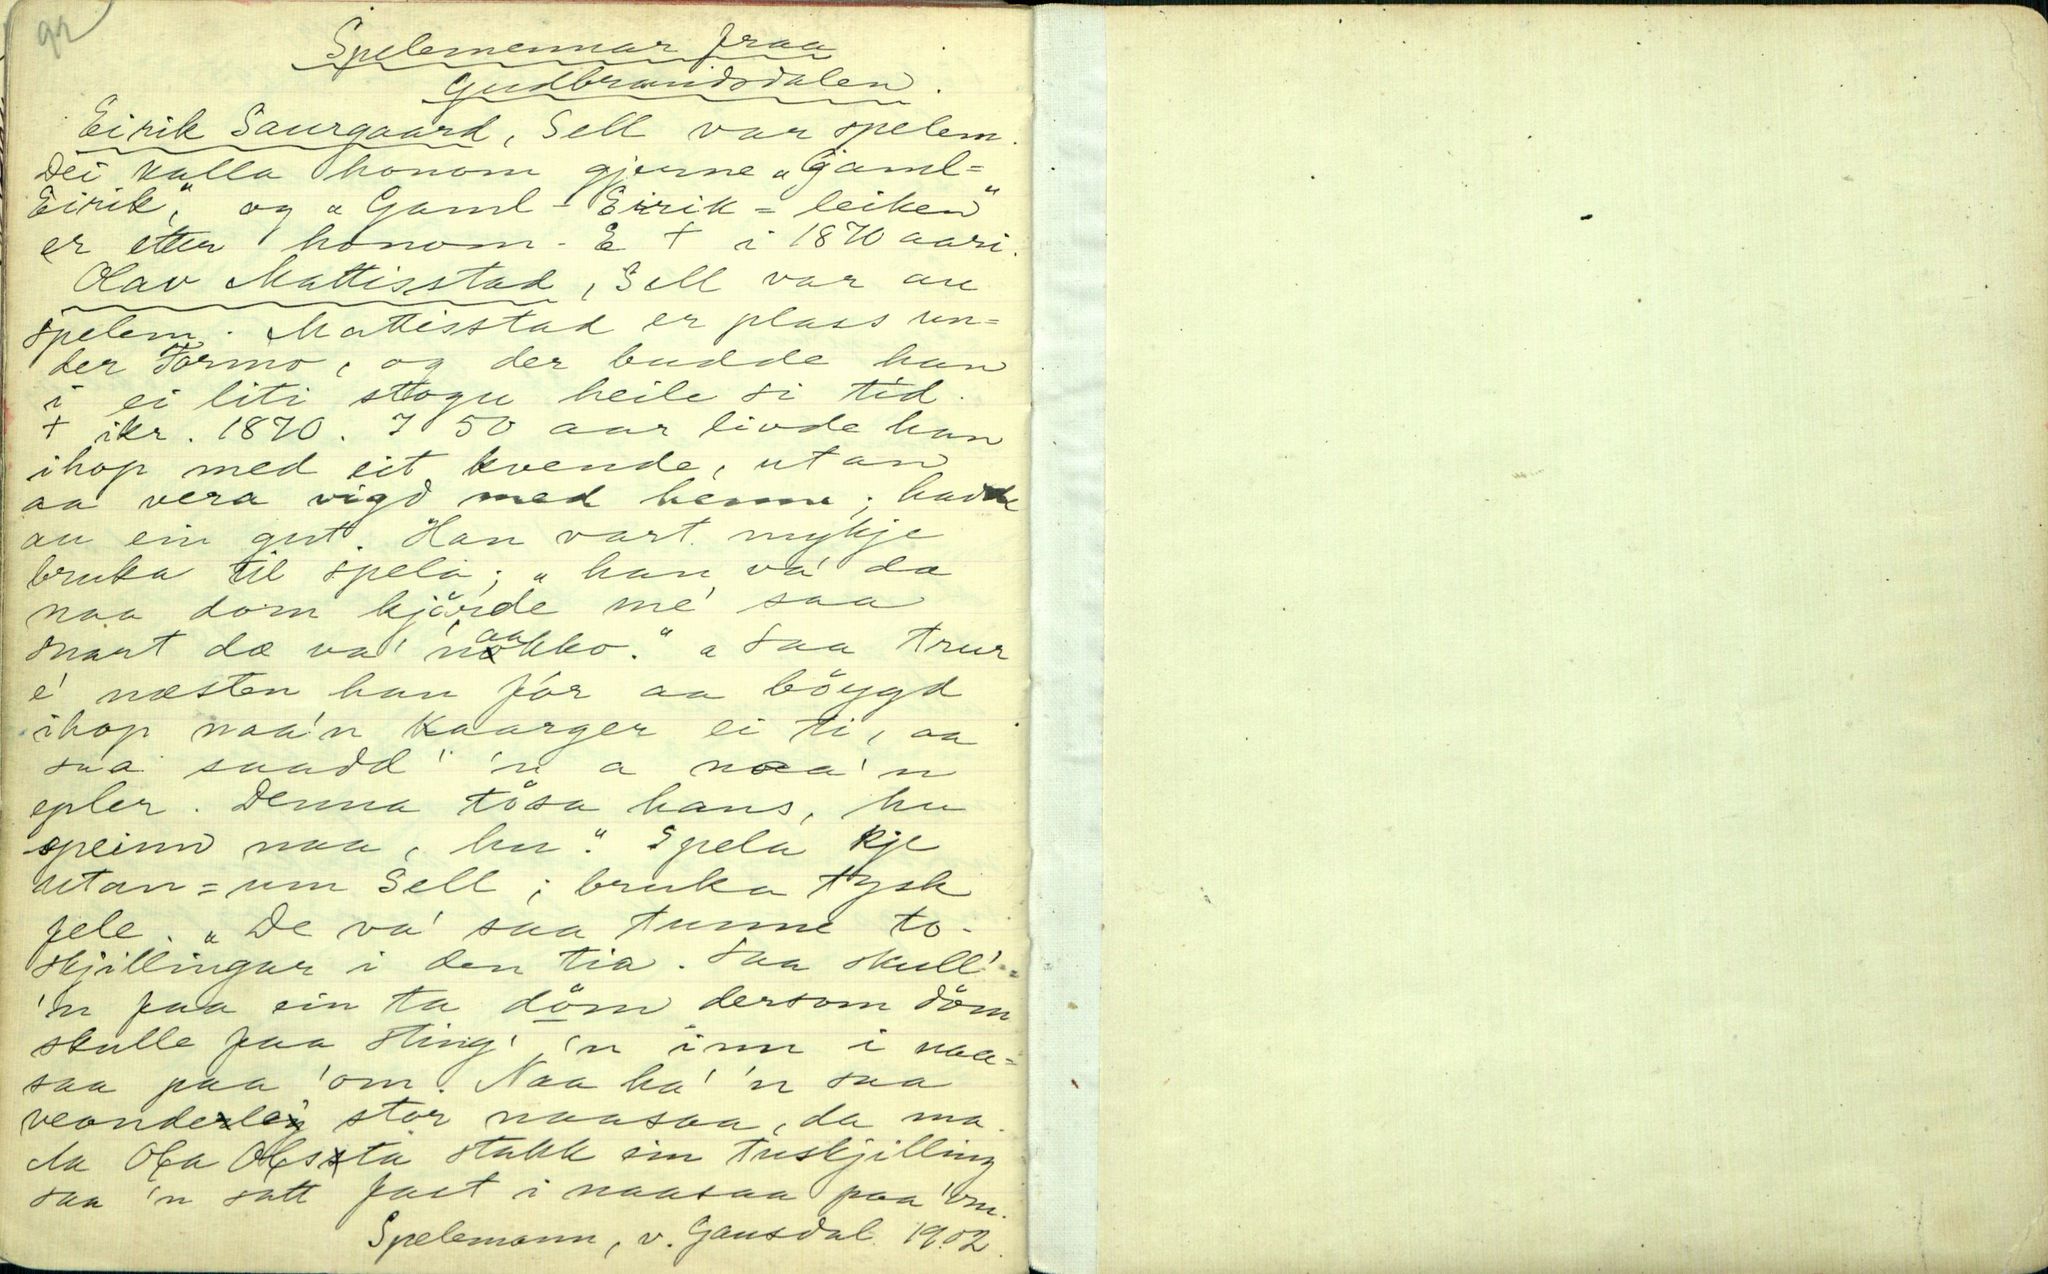 92
Spelemennar fraa
Gudbrandsdalen.
Eirik Saurgaard, Sell var spelem.
Dei kalla honom gjerne „Gaml=
Eirik", og „Gaml-Eirik=leiken"
er etter honom. E † i 1870 aari.
Olav Mattisstad, Sell var au
spelem. Mattisstad er plass un=
der Formo, og der budde han
i ei liti stogu heile si tid.
† ikr. 1870. I 50 aar livde han
ihop med eit kvende, utan
aa vera vigd med henne; hadde
au ein gut. Han vart mykje
bruka til spela; „han va' dæ
naa dom kjörde me' saa
snart dæ va' naakko." „Saa trur
e' næsten han fór aa böygd
ihop naa'n kaarger ei ti, aa
saa saadd' 'n a naa'n
epler. Denna tösa hans, hu
speinn naa, hu". Spela kje
utan=um Sell; bruka tysk
fele. „De va' saa tunne to-
skjillingar i den tia. Saa skull'=
'n faa ein ta döm dersom döm
skulle faa sting' 'n inn i naa=
saa paa 'om. Naa ha' 'n saa
veonde lei stor naasaa, da ma.
da Ola Olsta stakk ein tuskjilling
saa 'n satt fast i naasaa paa 'om.
Spelemann, v. Gausdal 1902.